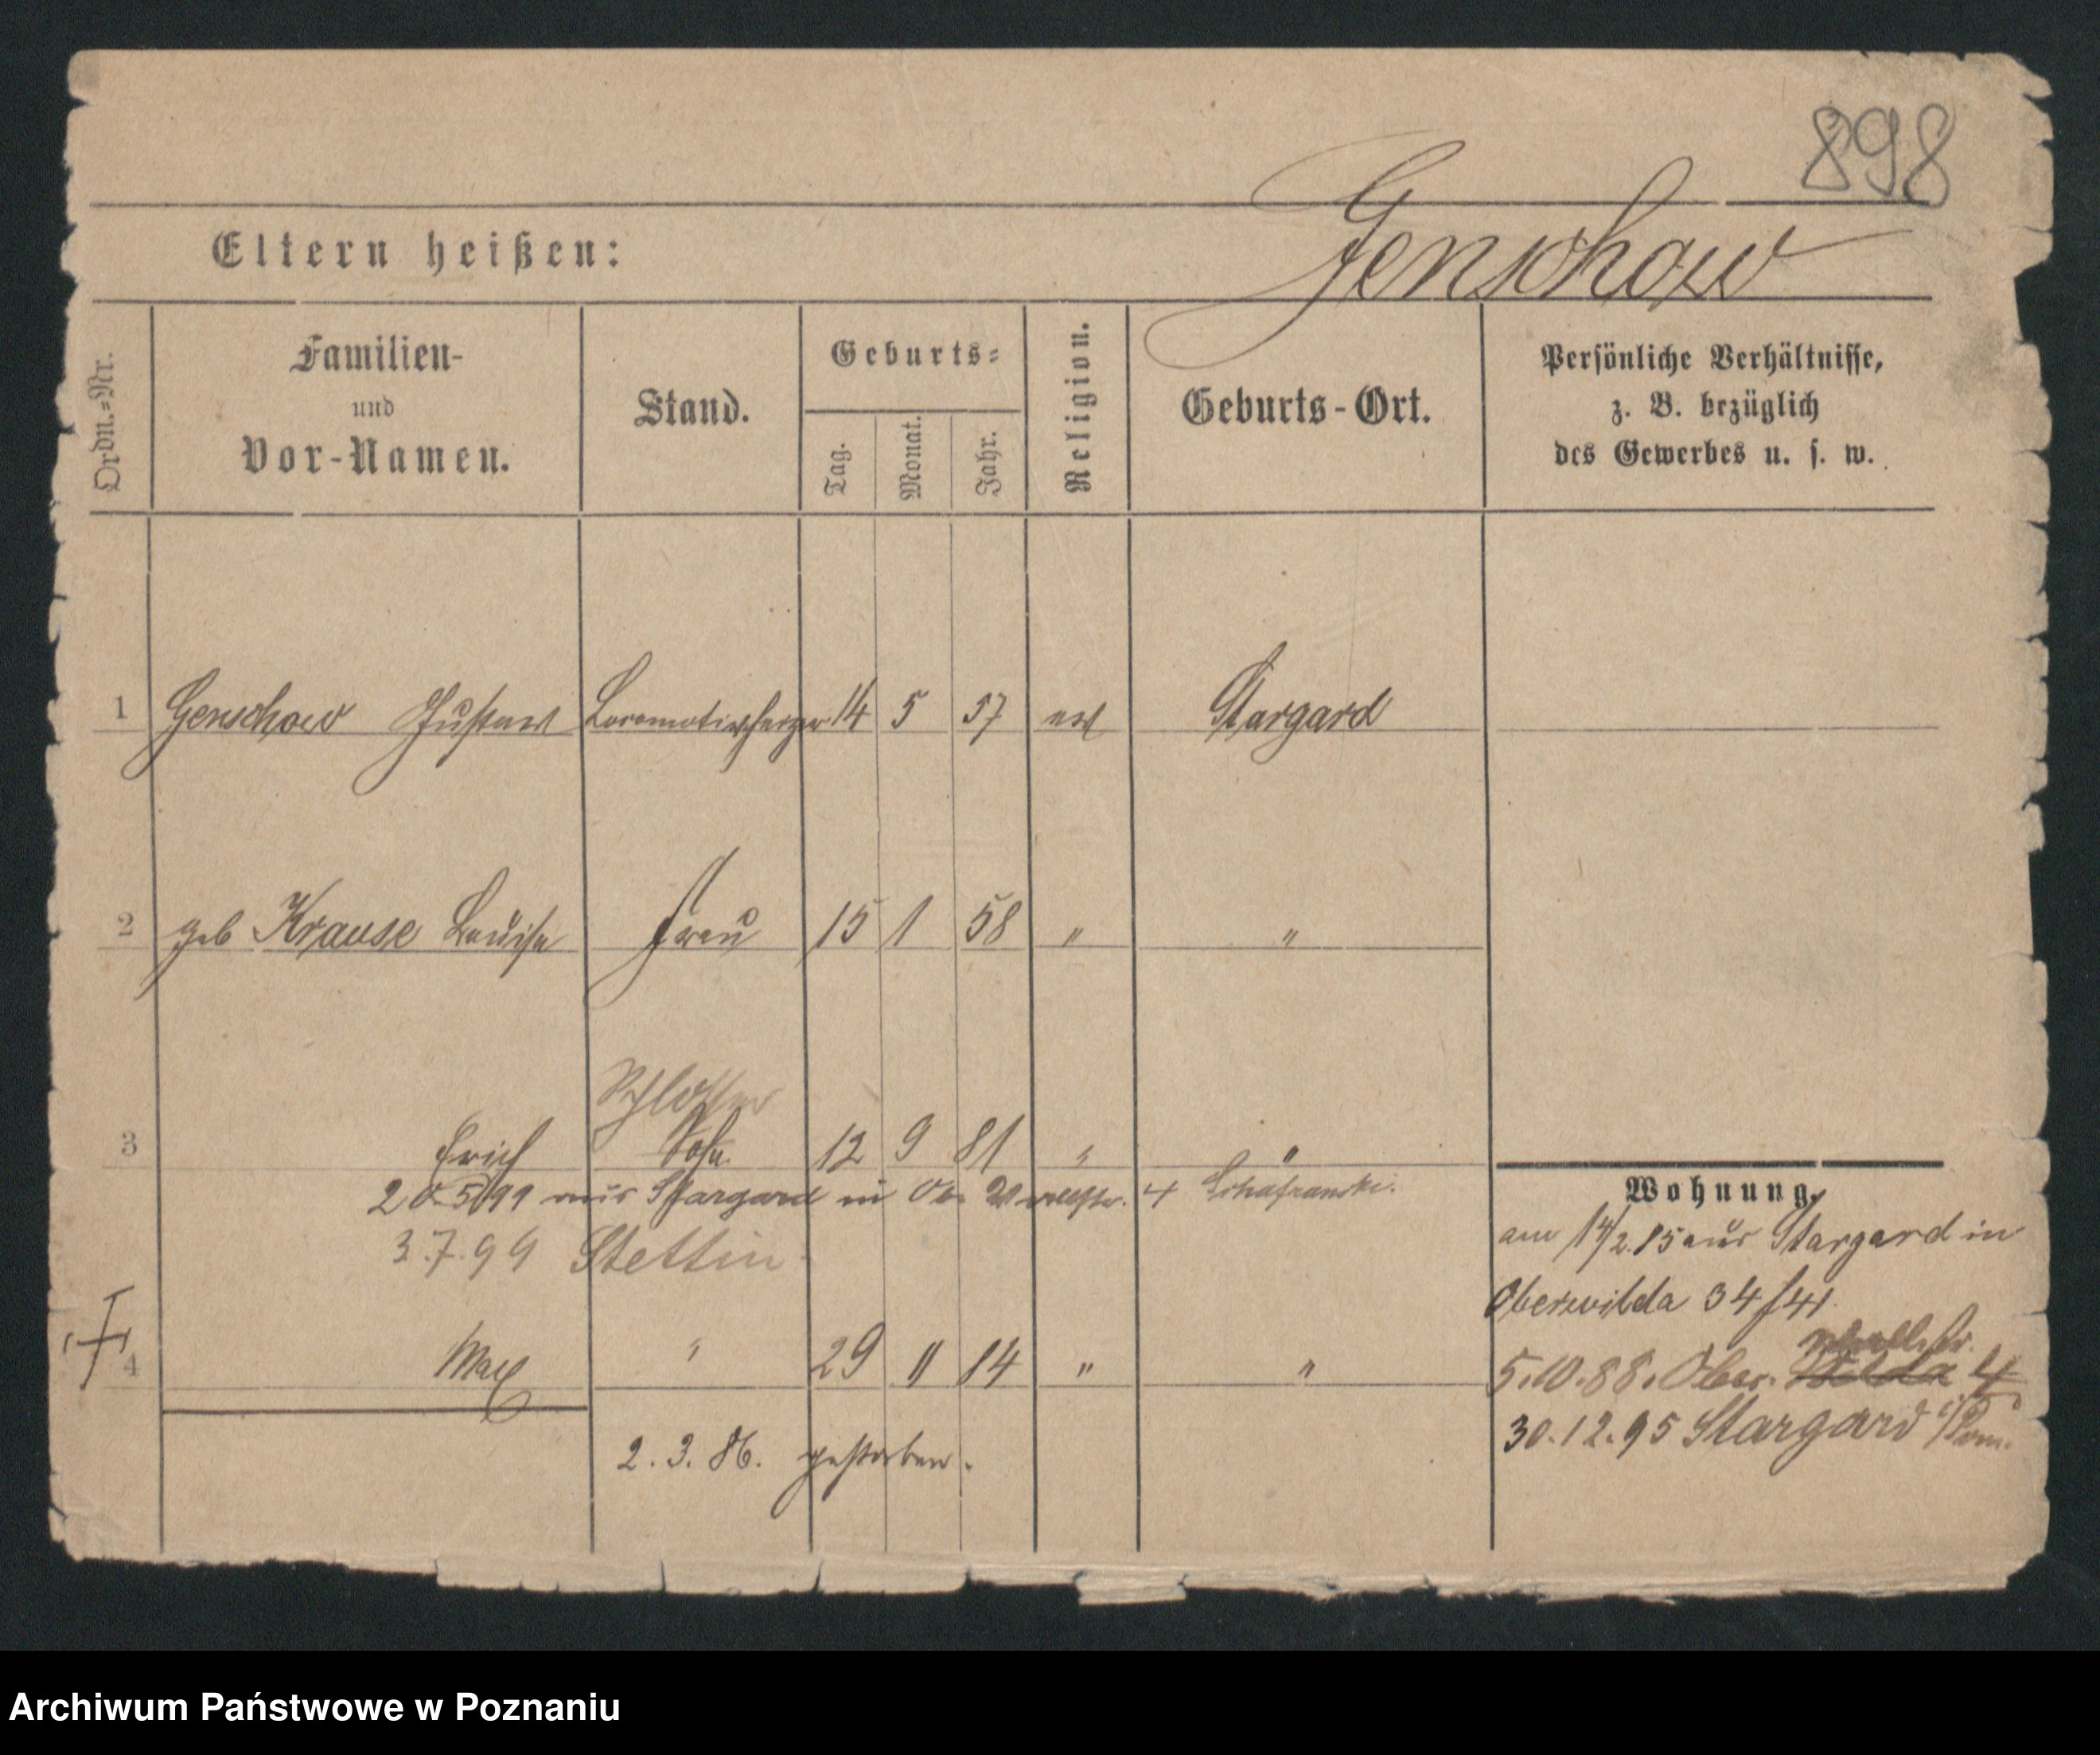 898
Eltern heißen:
Genschow
Ordn.=Nr.
Familien-
und
Vor-Namen.
Stand.
Geburts=
Tag.
Monat.
Jahr.
Religion.
Geburts-Ort.
Persönliche Verhältnisse,
z. B. bezüglich
des Gewerbes u. s. w.
1 Genschow Gustav Locomotivheizer 14 5 57 ev Stargard
2 geb Krause Louise Frau 15 1 58 " "
Schlosser
3 Erich Sohn 12 9 81 " "
20.5.99 aus Stargard in Ob. Wallstr. 4
3.7.99 Stettin.
4 Max " 29 11 84 " "
2. 3. 86. gestorben.
Wohnung.
am 14/2.85 aus Stargard in
Oberwilda 34/41.
Wallstr.
5.10.88. Ober. Wilda 4
30.12.95 Stargard i/Pom.
Archiwum Państwowe w Poznaniu